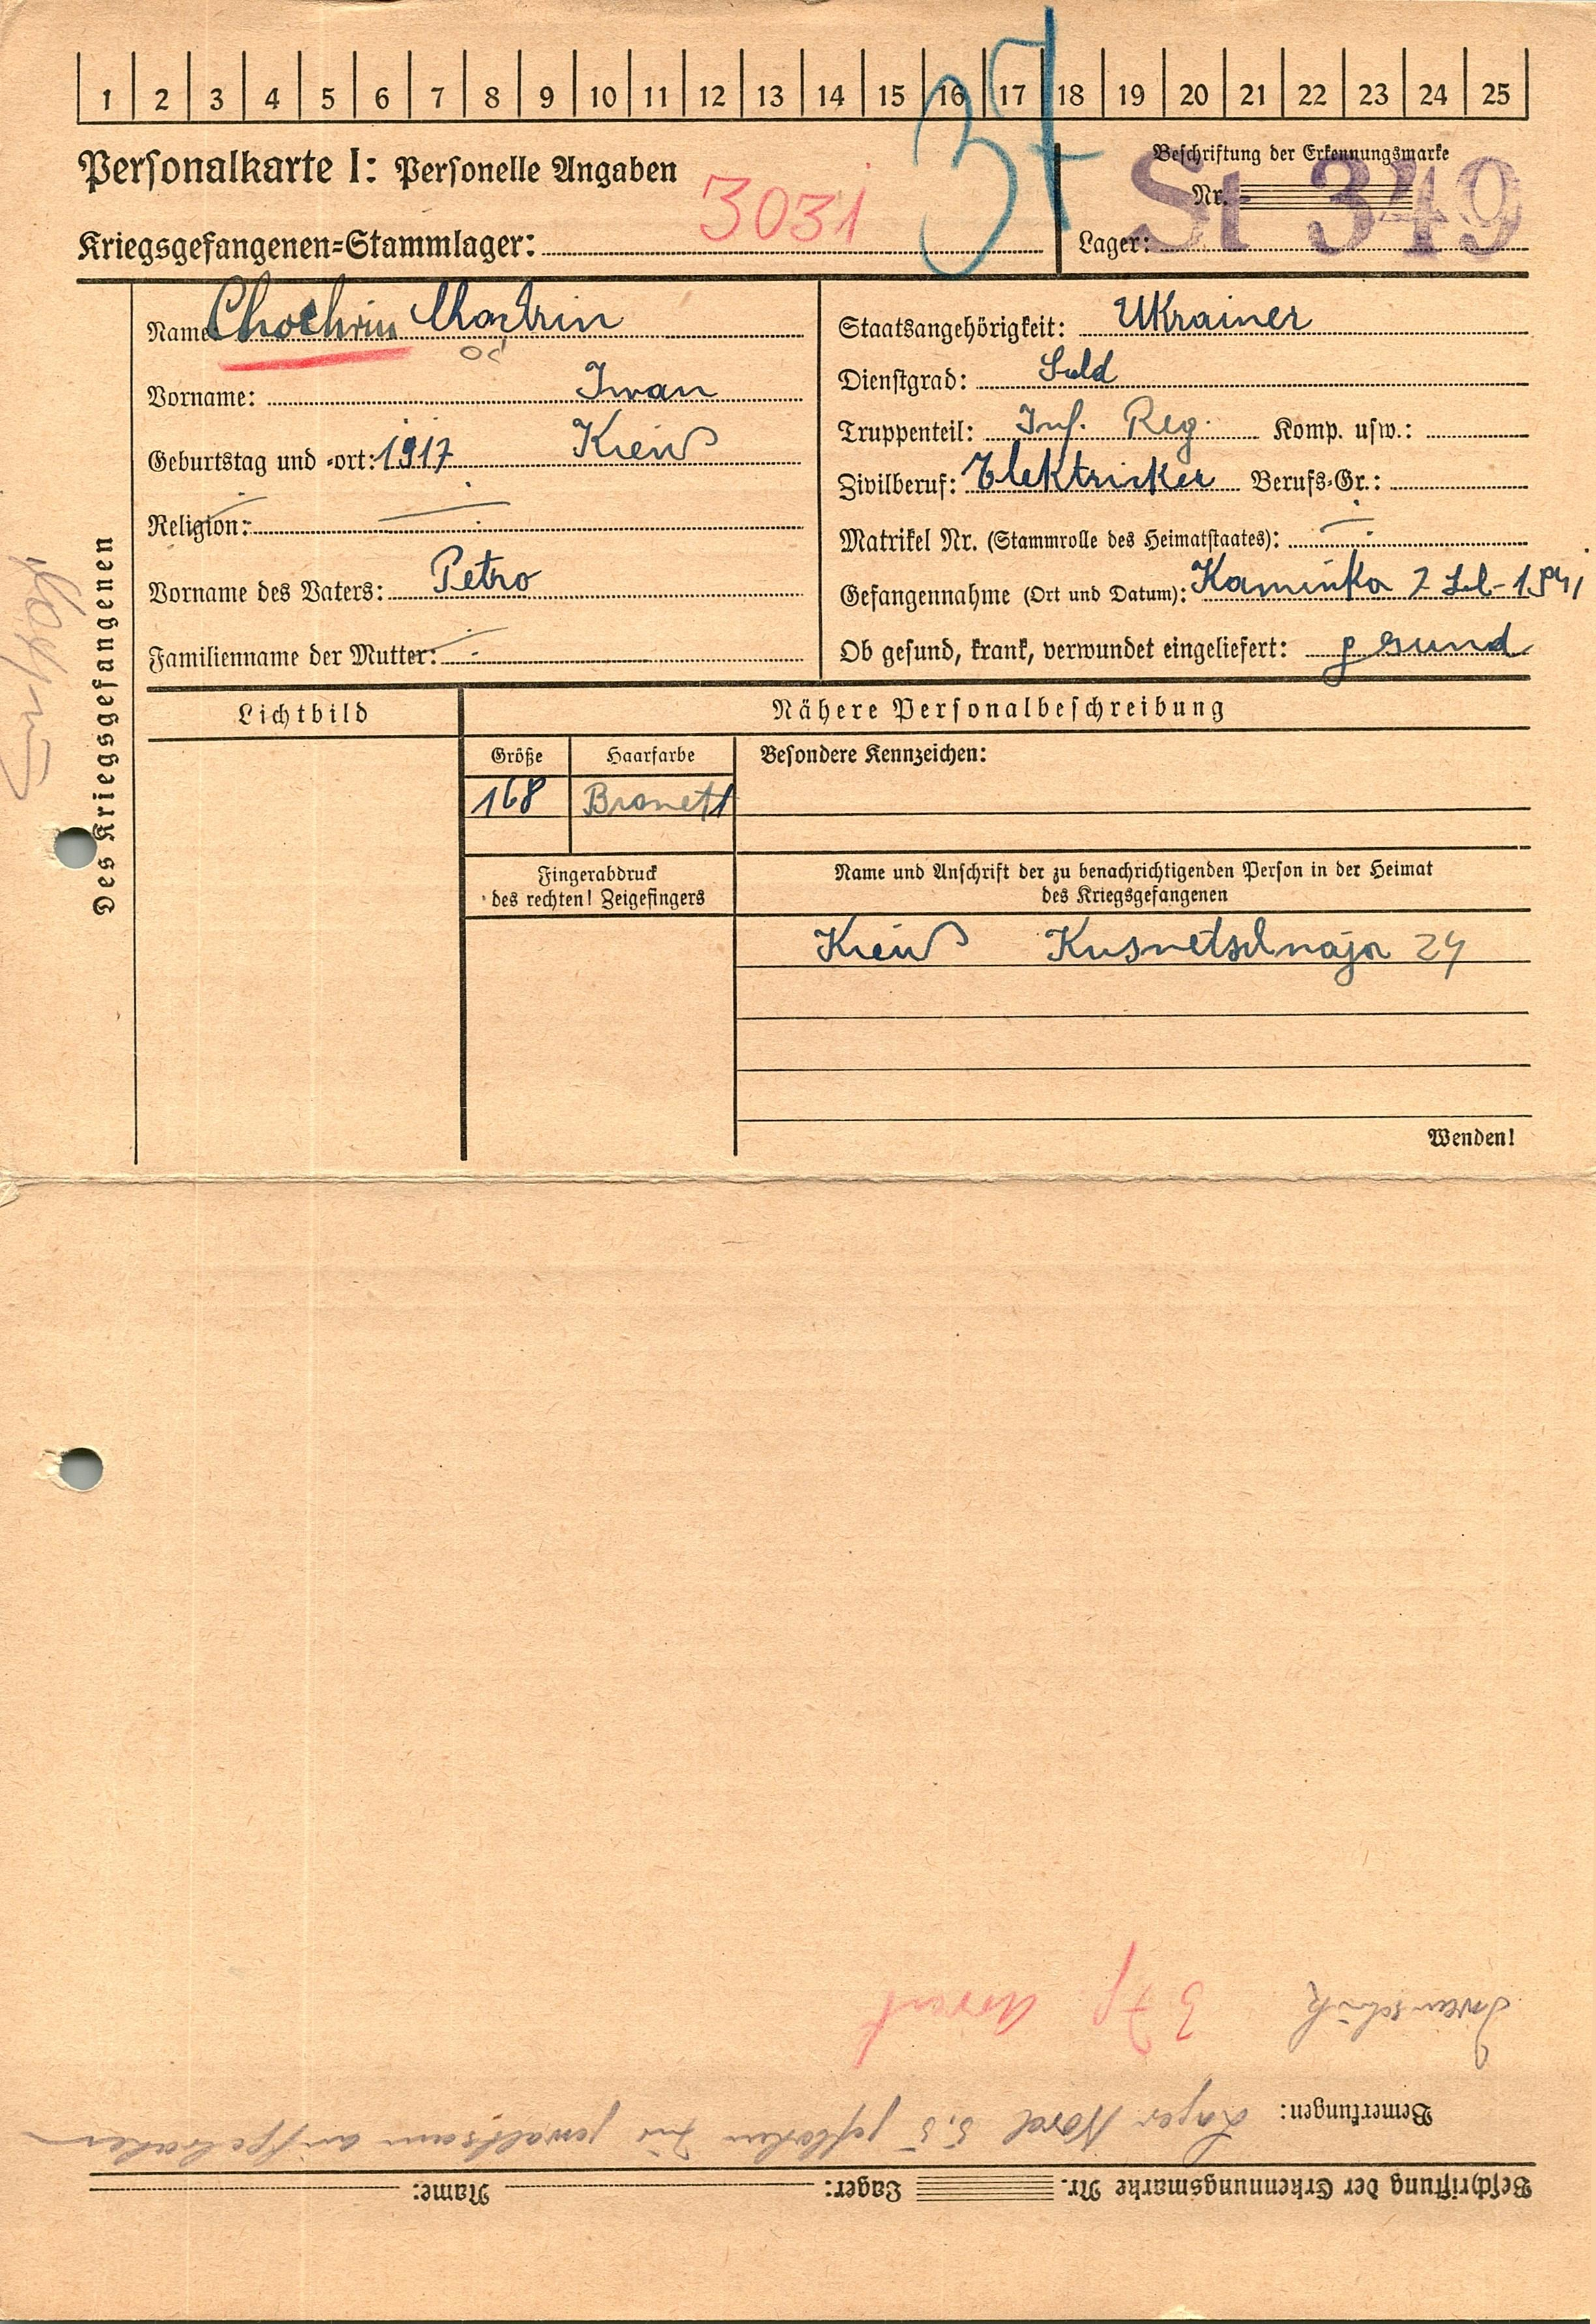 1 2 3 4 5 6 7 8 9 10 11 12 13 14 15 16 17 18 19 20 21 22 23 24 25
37
Personalkarte I: Personelle Angaben
3031
Kriegsgefangenen=Stammlager:
Beschriftung der Erkennungsmarke
Nr.
Lager: St 349
Des Kriegsgefangenen
Name: Chochrin
Vorname: Iwan
Geburtstag und =ort: 1917 Kiew
Religion:
Vorname des Vaters: Petro
Familienname der Mutter:
Staatsangehörigkeit: Ukrainer
Dienstgrad: Sold
Truppenteil: Inf. Reg. Komp. usw.:
Zivilberuf: Elektriker Berufs=Gr.:
Matrikel Nr. (Stammrolle des Heimatstaates):
Gefangennahme (Ort und Datum): Kaminka 1941
Ob gesund, krank, verwundet eingeliefert: gesund
Lichtbild
Nähere Personalbeschreibung
Größe Haarfarbe Besondere Kennzeichen:
168 Bronett
Fingerabdruck
des rechten! Zeigefingers
Name und Anschrift der zu benachrichtigenden Person in der Heimat
des Kriegsgefangenen
Kiew Kusnetschnaja 24
Wenden!
Beschriftung der Erkennungsmarke Nr. Lager: Name:
Bemerkungen: Lager Nord 5.5 geflohen gewaltsam